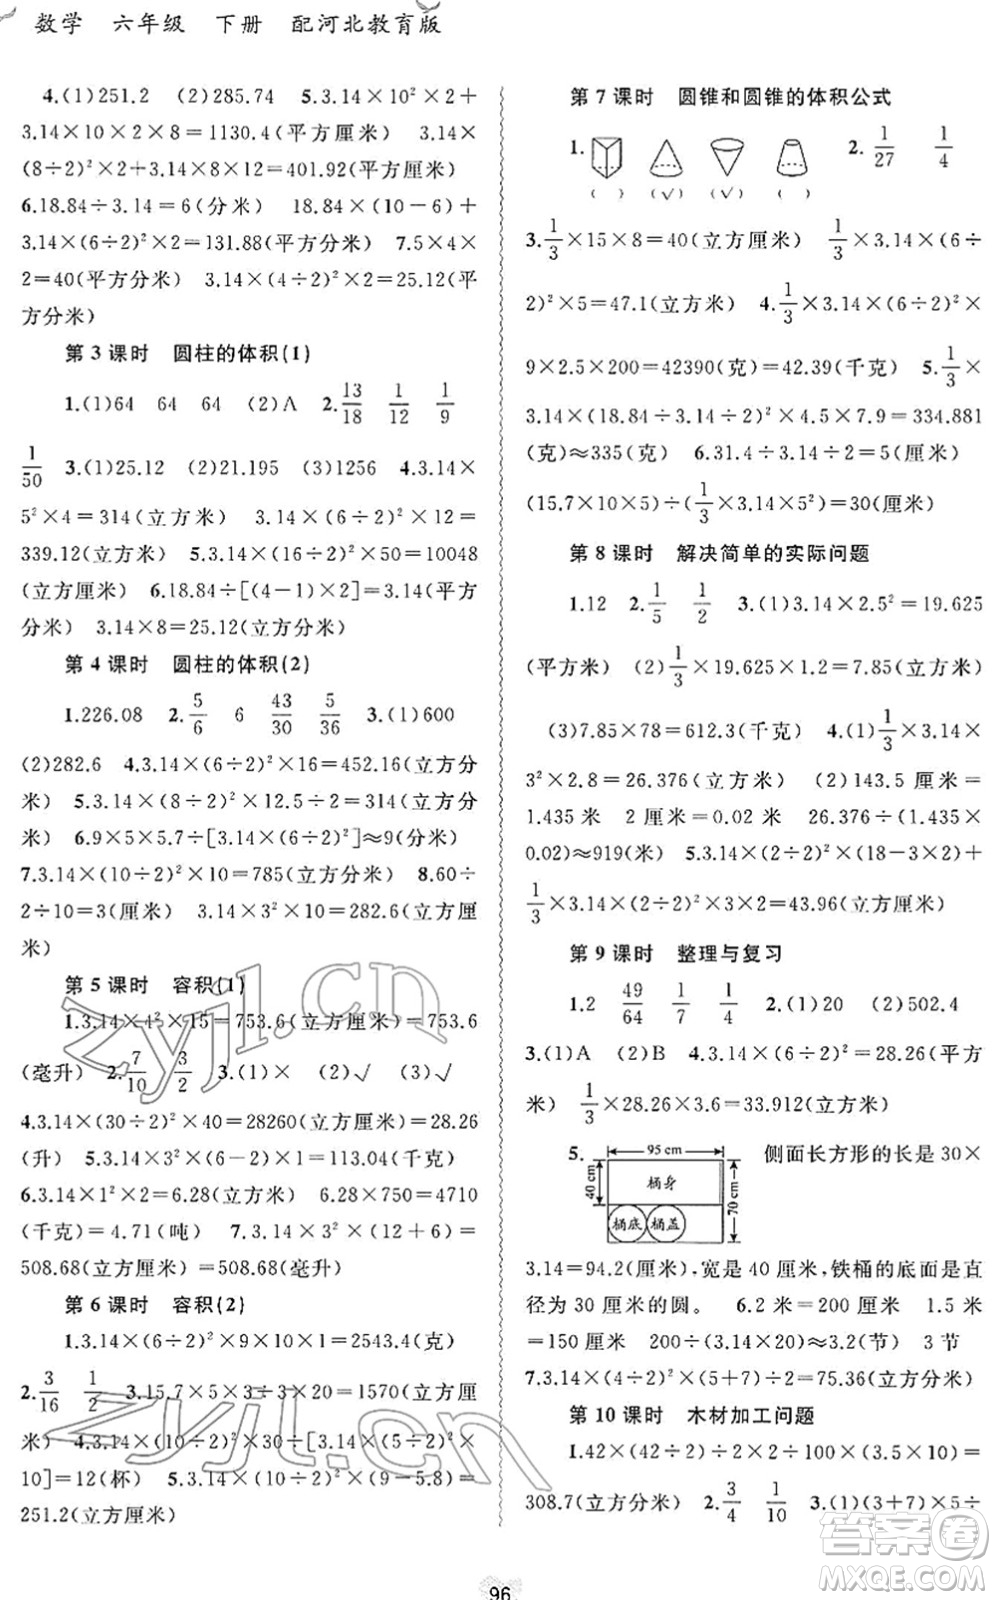 数学 六年级 下册 配河北教育版
4.(1)251.2 (2)285.74 5.3.14×10²×2+
3.14×10×2×8=1130.4(平方厘米) 3.14×
(8÷2)²×2+3.14×8×12=401.92(平方厘米)
6.18.84÷3.14=6(分米) 18.84×(10-6)+
3.14×(6÷2)²×2=131.88(平方分米) 7.5×4×
2=40(平方分米) 3.14×(4÷2)²×2=25.12(平
方分米)
第3课时 圆柱的体积(1)
1.(1)64 64 64 (2)A 2.13/18 1/12 1/9
1/50 3.(1)25.12 (2)21.195 (3)1256 4.3.14×
5²×4=314(立方米) 3.14×(6÷2)²×12=
339.12(立方米) 5.3.14×(16÷2)²×50=10048
(立方厘米) 6.18.84÷[(4-1)×2]=3.14(平方
分米) 3.14×8=25.12(立方分米)
第4课时 圆柱的体积(2)
1.226.08 2.5/6 6 43/30 5/36 3.(1)600
(2)282.6 4.3.14×(6÷2)²×16=452.16(立方分
米) 5.3.14×(8÷2)²×12.5÷2=314(立方分
米) 6.9×5×5.7÷[3.14×(6÷2)²]≈9(分米)
7.3.14×(10÷2)²×10=785(立方分米) 8.60÷
2÷10=3(厘米) 3.14×3²×10=282.6(立方厘
米)
第5课时 容积(1)
1.3.14×4²×15=753.6(立方厘米)=753.6
(毫升) 2.7/10 3/2 3.(1)× (2)√ (3)√
4.3.14×(30÷2)²×40=28260(立方厘米)=28.26
(升) 5.3.14×3²×4=113.04(千克)
6.3.14×1²×2=6.28(立方米) 6.28×750=4710
(千克)=4.71(吨) 7.3.14×3²×(12+6)=
508.68(立方厘米)=508.68(毫升)
第6课时 容积(2)
1.3.14×(6÷2)²×9×10×1=2543.4(克)
2.3/16 1/2 3.15.7×5×2×3×20=1570(立方厘
米) 4.3.14×(10÷2)²×30÷[3.14×(5÷2)²×
10]=12(杯) 5.3.14×(10÷2)²×(9-5.8)=
251.2(立方厘米)
第7课时 圆锥和圆锥的体积公式
1. 2. 1/27 1/4
( ) (√) (√) ( )
3.1/3×15×8=40(立方厘米) 1/3×3.14×(6÷
2)²×5=47.1(立方米) 4.1/3×3.14×(6÷2)²×
9×2.5×200=42390(克)=42.39(千克) 5.1/3×
3.14×(18.84÷3.14÷2)²×4.5×7.9=334.881
(克)≈335(克) 6.31.4÷3.14÷2=5(厘米)
(15.7×10×5)÷(1/3×3.14×5²)=30(厘米)
第8课时 解决简单的实际问题
1.12 2.1/5 1/2 3.(1)3.14×2.5²=19.625
(平方米) (2)1/3×19.625×1.2=7.85(立方米)
(3)7.85×78=612.3(千克) 4.(1)1/3×3.14×
3²×2.8=26.376(立方米) (2)143.5厘米=
1.435米 2厘米=0.02米 26.376÷(1.435×
0.02)≈919(米) 5.3.14×(2÷2)²×(18-3×2)+
1/3×3.14×(2÷2)²×3×2=43.96(立方厘米)
第9课时 整理与复习
1.2 49/64 1/7 1/4 2.(1)20 (2)502.4
3.(1)A (2)B 4.3.14×(6÷2)²=28.26(平方
米) 1/3×28.26×3.6=33.912(立方米)
5. 95 cm 40 cm 桶身 70 cm 桶底 桶盖 侧面长方形的长是30×
3.14=94.2(厘米),宽是40厘米,铁桶的底面是直
径为30厘米的圆。 6.2米=200厘米 1.5米
=150厘米 200÷(3.14×20)≈3.2(节) 3节
7.3.14×(4÷2)²×(5+7)÷2=75.36(立方分米)
第10课时 木材加工问题
1.42×(42÷2)÷2×2÷100×(3.5×10)=
308.7(立方分米) 2.3/4 1/10 3.(1)(3+7)×5÷
96
zyjl.cn
zyjl.cn
答案圈
MXQE.COM